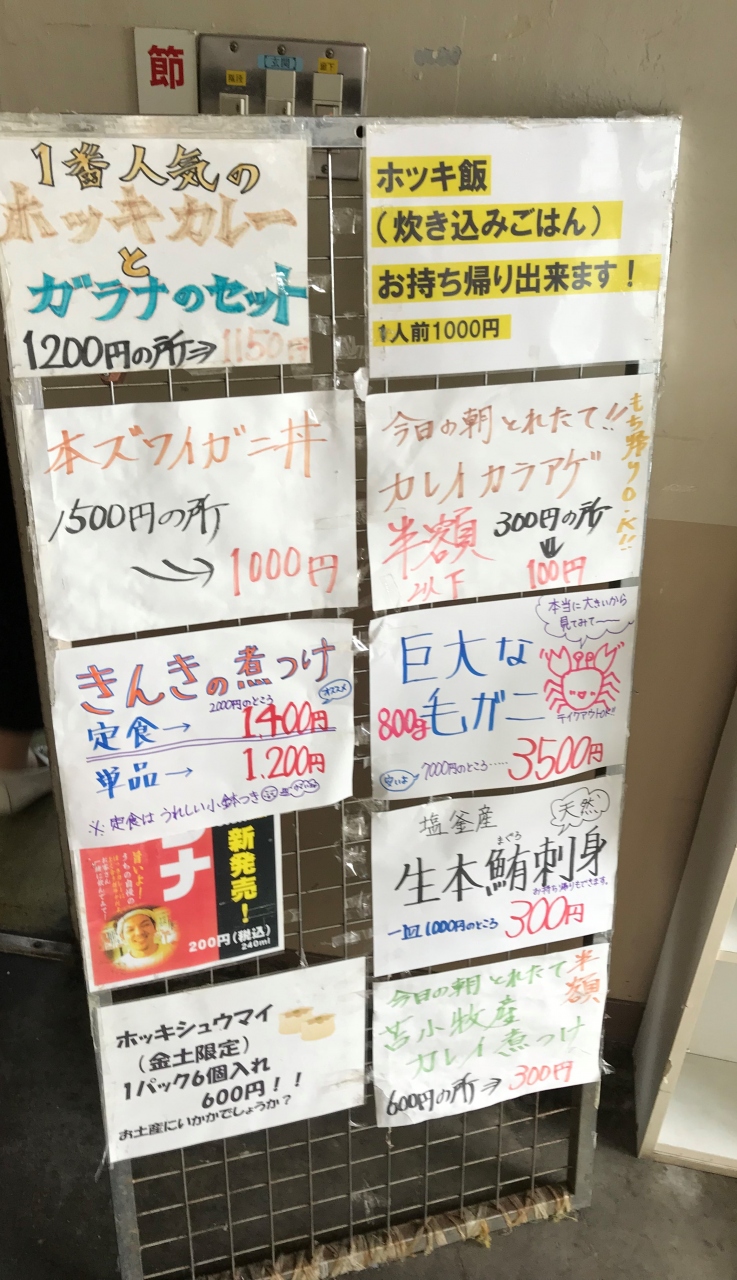 節
臨時
【玄関】
廊下
1番人気の
ホッキカレー
と
ガラナのセット
1200円の所⇒1150円
ホッキ飯
（炊き込みごはん）
お持ち帰り出来ます！
1人前1000円
本ズワイガニ丼
1500円の所
→1000円
今日の朝とれたて!!
カレイカラアゲ
半額
以下
300円の所
↓
100円
もち帰りO.K!!
きんきの煮つけ
2000円のところ
オススメ
定食→1400円
単品→1.200円
※定食はうれしい小鉢つき
本当に大きいから
見てみて〜
巨大な
800g毛ガニ
テイクアウトOK!!
安いよ
7000円のところ……3500円
ナ
新発売！
旨いよ！
200円(税込)
240ml
塩釜産
天然
まぐろ
生本鮪刺身
お持ち帰りもできます。
一皿1000円のところ300円
ホッキシュウマイ
（金土限定）
1パック6個入れ
600円！！
お土産にいかがでしょうか？
今日の朝とれたて
半額
苫小牧産
カレイ煮つけ
600円の所⇒300円